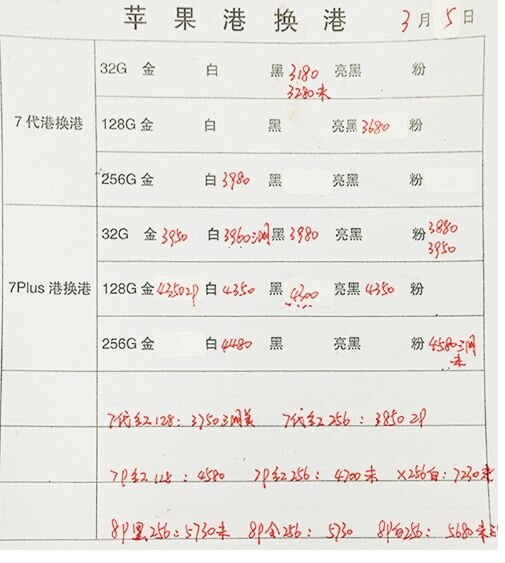 苹果港换港 3月5日
32G 金 白 黑 3180 亮黑 粉
3280未
7代港换港 128G 金 白 黑 亮黑 3680 粉
256G 金 白 3980 黑 亮黑
32G 金 3950 白 3960三网 黑 3980 亮黑 粉 3880
3950
7Plus 港换港 128G 金 4350 2P 白 4350 黑 4300 亮黑 4350 粉
256G 金 白 4480 黑 亮黑 粉 4580三网
未
7代红128：3750三网美 7代红256：3850 2P
7P红128：4580 7P红256：4700未 X256白：7230未
8P黑256：5730未 8P金256：5730 8P白256：5680未